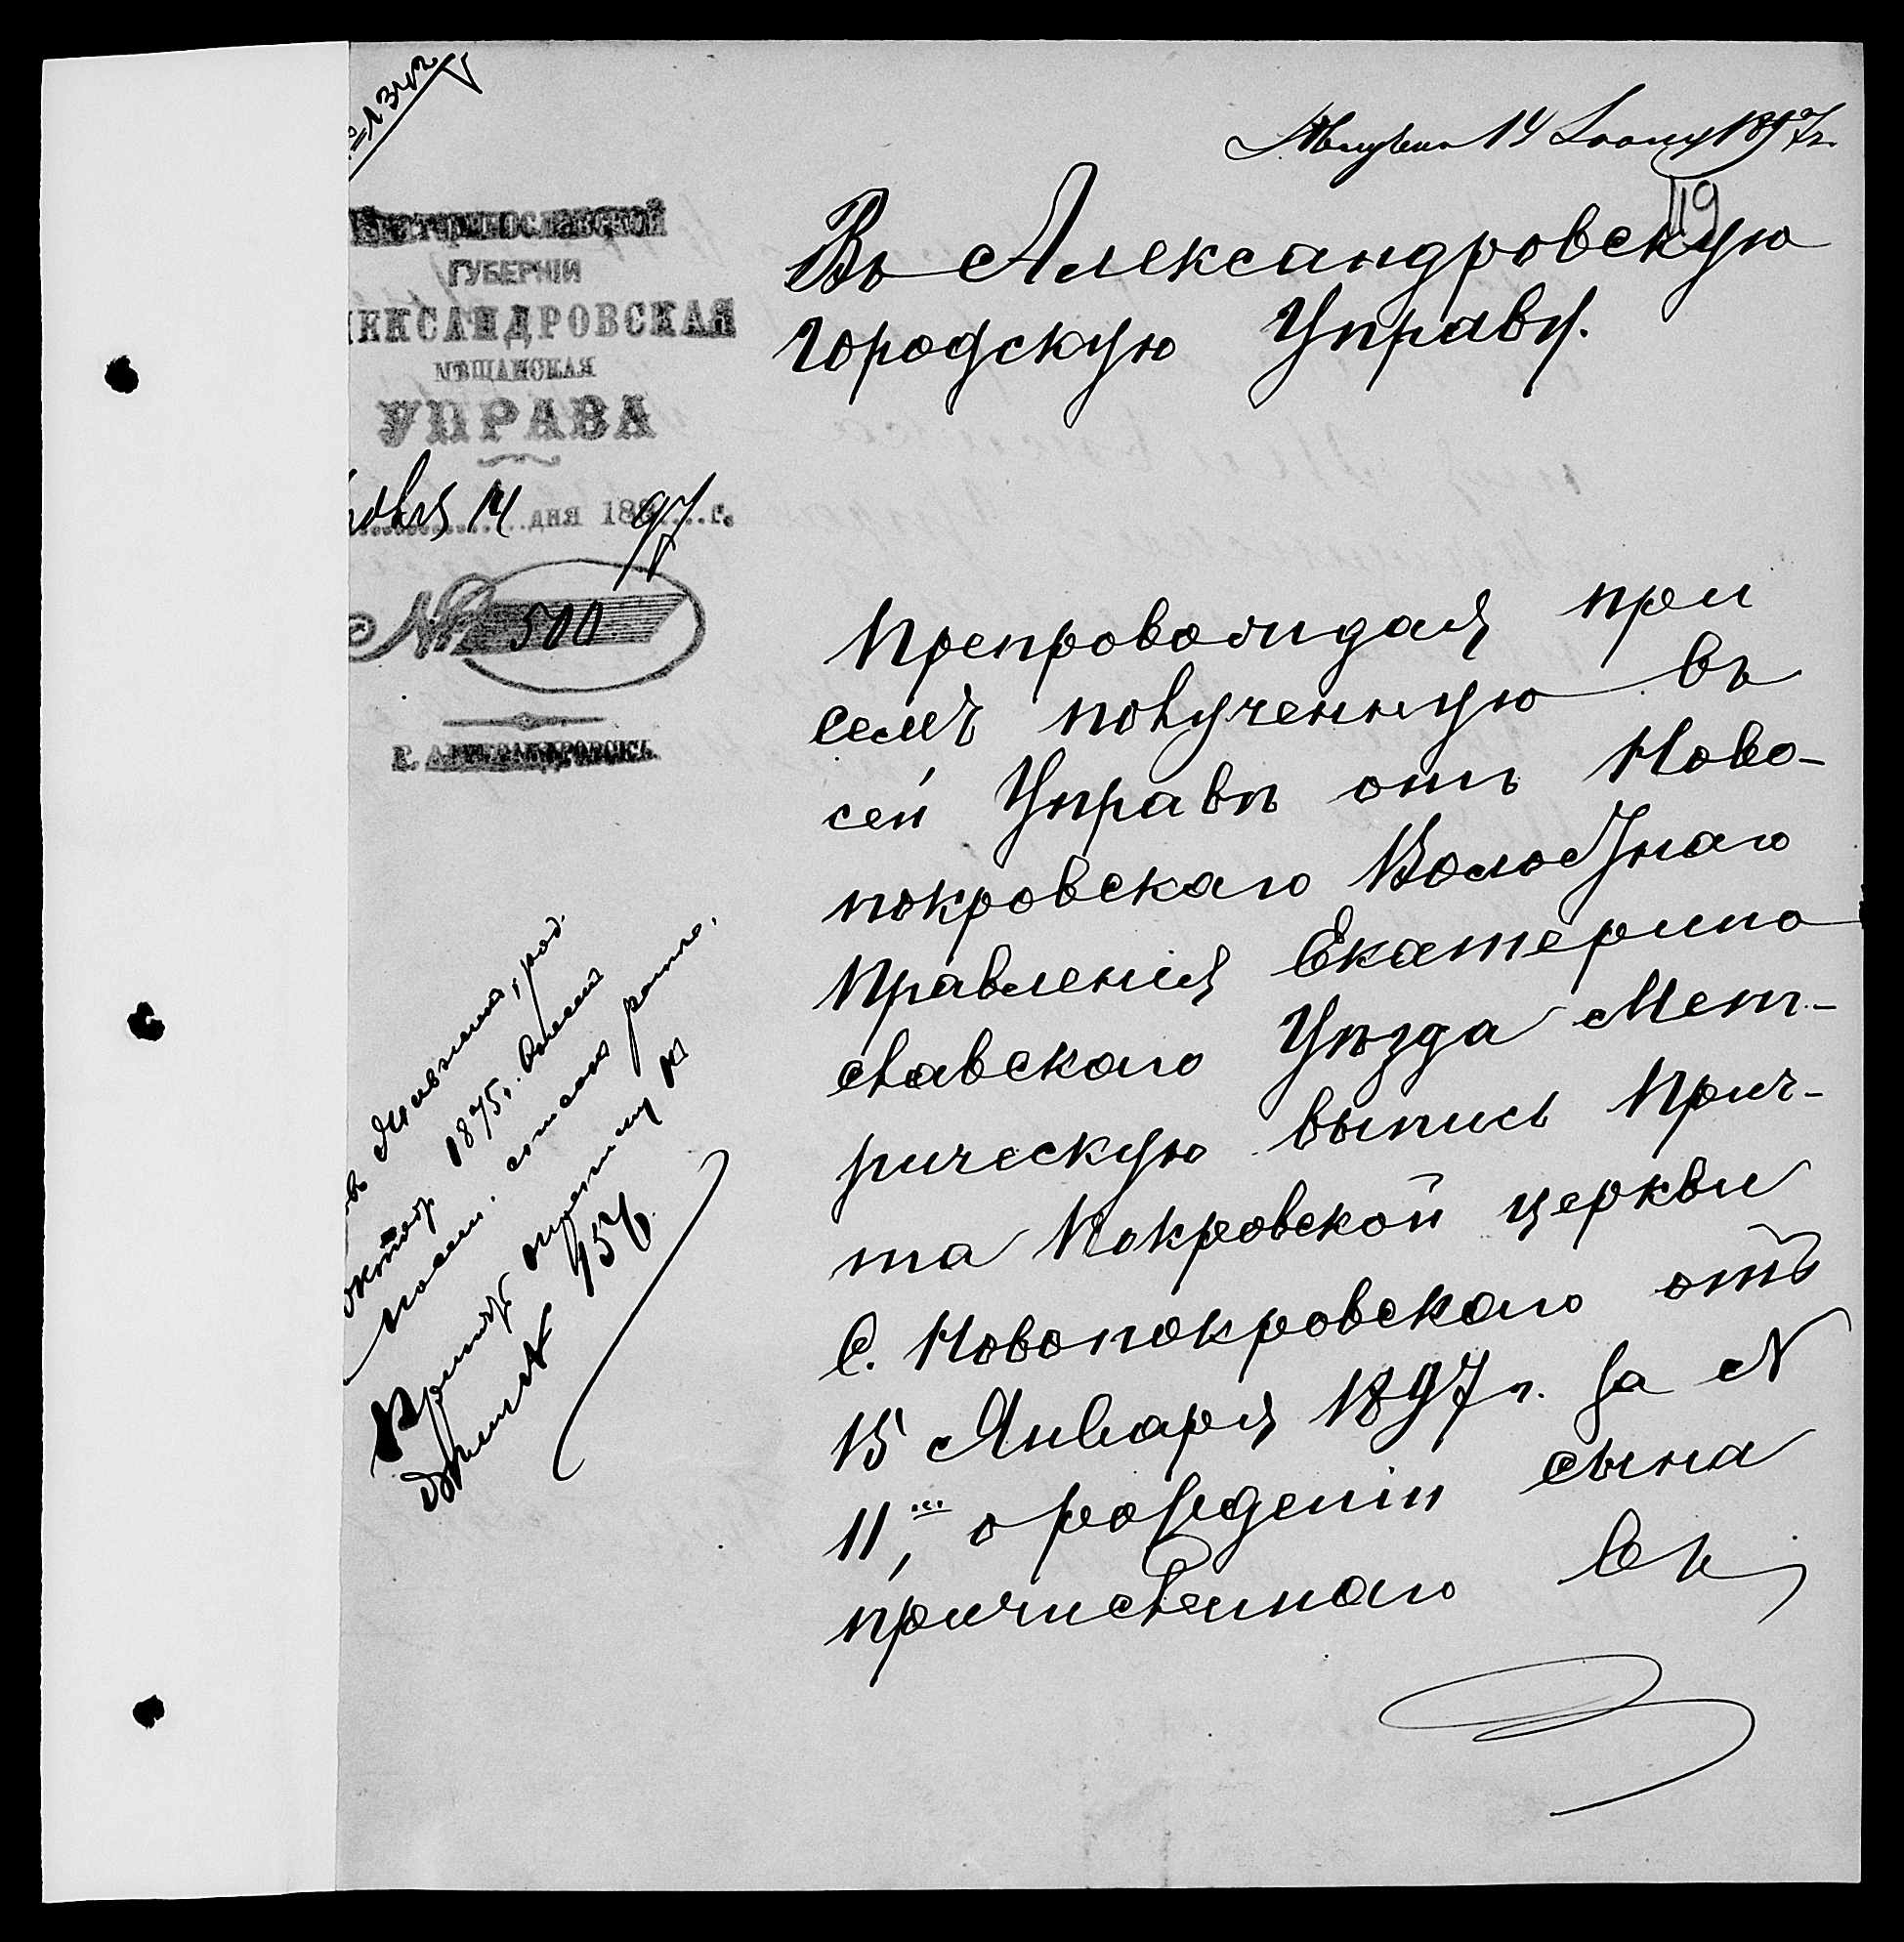 14 1897г.
119
Екатеринославской
ГУБЕРНІИ
АЛЕКСАНДРОВСКАЯ
МѢЩАНСКАЯ
УПРАВА
14 дня 1897 г.
№ 500
Г. АЛЕКСАНДРОВСКЪ.
Въ Александровскую
Городскую Управу.
Препровождая при
семъ полученную въ
сей Управѣ отъ Ново-
покровскаго Волостнаго
Правленія Екатерино
славскаго Уѣзда Мет-
рическую выпись Прич-
та Покровской церкви
С. Новопокровскаго отъ
15 Января 1897 г. за №
11, о рожденіи сына
причисленнаго въ
род.
октябр 1875г.
456